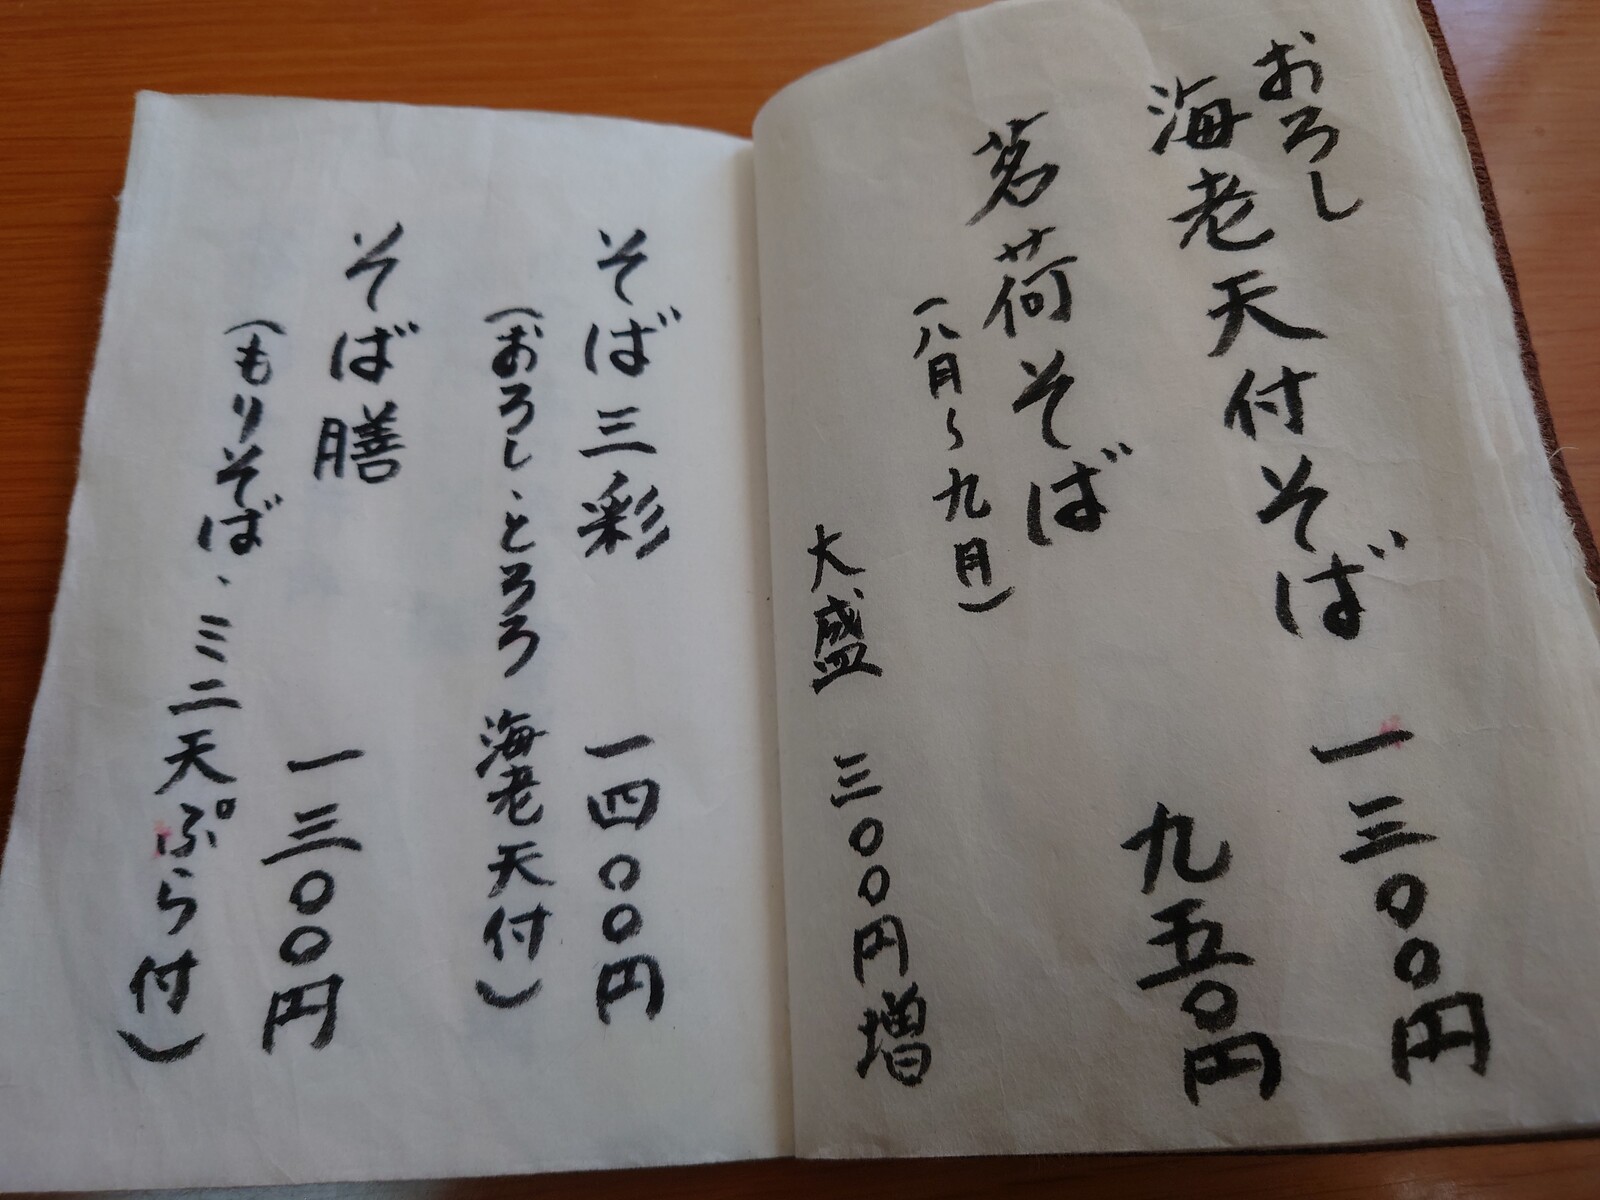 おろし
海老天付そば 一三〇〇円
茗荷そば 九五〇円
(八月〜九月)
大盛 三〇〇円増
そば三彩 一四〇〇円
(おろし・とろろ 海老天付)
そば膳 一三〇〇円
(もりそば・ミニ天ぷら付)